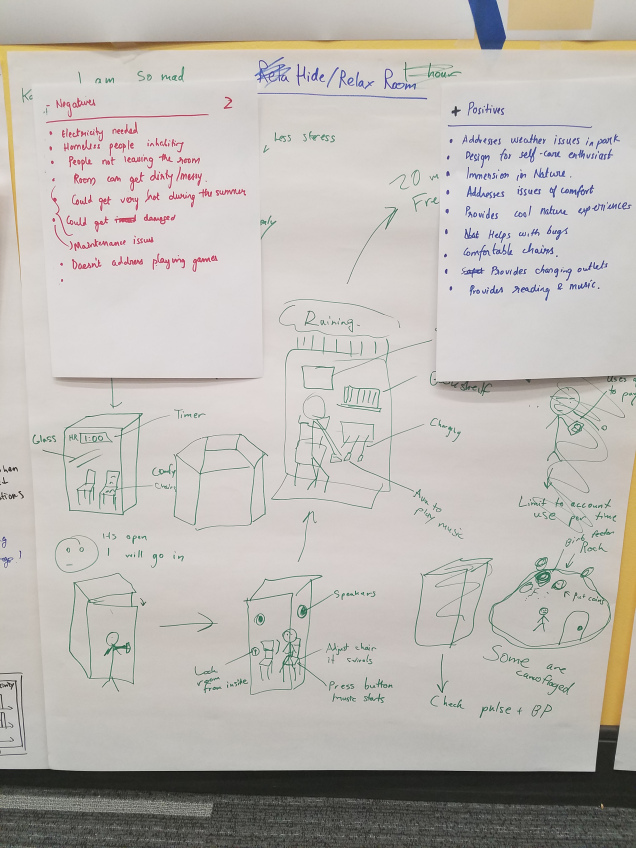 I am So mad
Hide/Relax Room
1 hour
- Negatives
2
• Electricity needed
• Homeless people inhabiting
• People not leaving the room
• Room can get dirty/messy.
• Could get very hot during the summer
• Could get damaged
Maintenance issues
• Doesn't address playing games
•
+ Positives
• Addresses weather issues in park
• Design for self-care enthusiast
• Immersion in Nature.
• Addresses issues of comfort
• Provides cool nature experiences
• Helps with bugs
• Comfortable chairs.
• Provides charging outlets
• Provides reading & music.
Less stress
20
Fre
Raining
Charging
Aux to
play music
Glass
HR 1:00
Timer
Comfy
Chairs
It's open
I will go in
Lock
room
from inside
Speakers
Adjust chair
it swivels
Press button
music starts
Limit to account
use per time
Rock
Put coins
Some are
camoflaged
Check pulse + BP